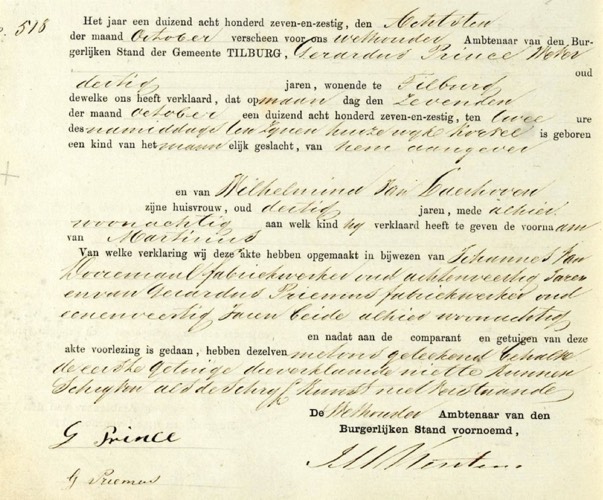 518
Het jaar een duizend acht honderd zeven-en-zestig, den Achtsten
der maand October verscheen voor ons wethouder Ambtenaar van den Bur-
gerlijken Stand der Gemeente TILBURG, Gerardus Prince Wever
oud
dertig jaren, wonende te Tilburg
dewelke ons heeft verklaard, dat op maan dag den Zevenden
der maand October een duizend acht honderd zeven-en-zestig, ten twee ure
des namiddags ten zijnen huize wijk Korvel is geboren
een kind van het mann elijk geslacht, van hem aangever
en van Wilhelmina Van Laerhoven
zijne huisvrouw, oud dertig jaren, mede alhier
woonachtig aan welk kind hij verklaard heeft te geven de voornaam
van Martinus
Van welke verklaring wij deze akte hebben opgemaakt in bijwezen van Johannes Van
Dooremaal fabriekwerker oud achtenveertig Jaren
en van Gerardus Priemus fabriekwerker oud
eenenveertig Jaren beide alhier woonachtig
en nadat aan de comparant en getuigen van deze
akte voorlezing is gedaan, hebben dezelven met ons geteekend behalve
de eerste getuige die verklaarde niet te kunnen
Schrijven als de Schrijfkunst niet verstaande
De Wethouder Ambtenaar van den
Burgerlijken Stand voornoemd,
G Prince
G Priemus